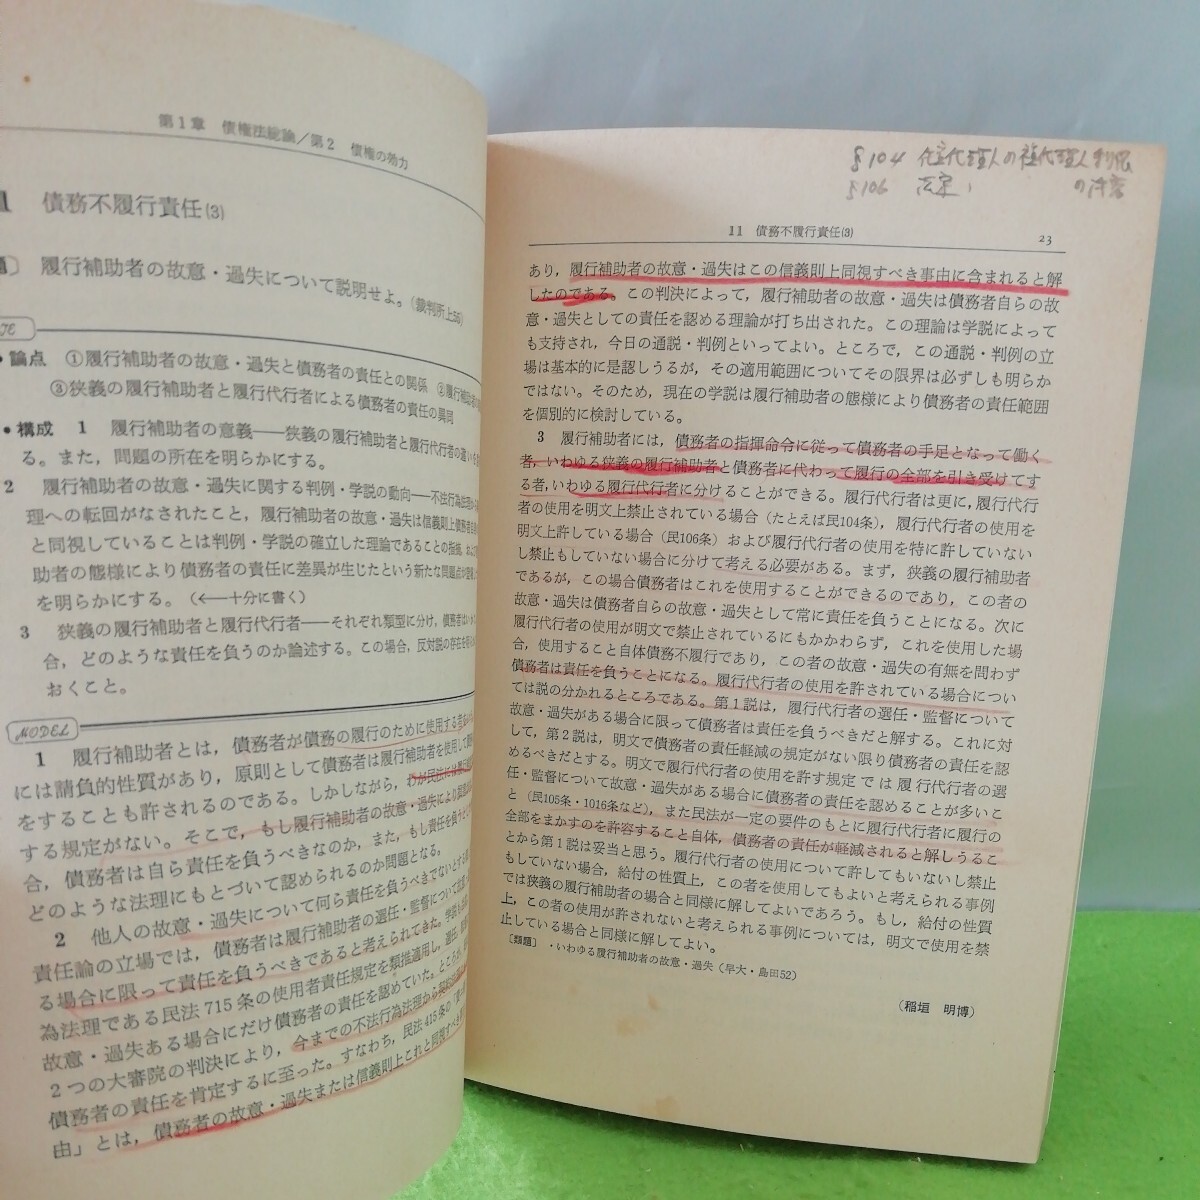 第1章 債権法総論/第2 債権の効力
1 債務不履行責任(3)
題〕 履行補助者の故意・過失について説明せよ。(裁判所上56)
• 論点 ①履行補助者の故意・過失と債務者の責任との関係 ②履行補助
③狭義の履行補助者と履行代行者による債務者の責任の異同
• 構成 1 履行補助者の意義──狭義の履行補助者と履行代行者の違いを
る。また,問題の所在を明らかにする。
2 履行補助者の故意・過失に関する判例・学説の動向──不法行為法理か
理への転回がなされたこと,履行補助者の故意・過失は信義則上債務者
と同視していることは判例・学説の確立した理論であることの指摘,
助者の態様により債務者の責任に差異が生じたという新たな問題点
を明らかにする。(←─十分に書く)
3 狭義の履行補助者と履行代行者──それぞれ類型に分け,債務者は
合,どのような責任を負うのか論述する。この場合,反対説の存在を
おくこと。
MODEL
1 履行補助者とは,債務者が債務の履行のために使用する者
には請負的性質があり,原則として債務者は履行補助者を使用して
をすることも許されるのである。しかしながら,わが民法には
する規定がない。そこで,もし履行補助者の故意・過失により
合,債務者は自ら責任を負うべきなのか,また,もし責任を負うと
どのような法理にもとづいて認められるのか問題となる。
2 他人の故意・過失について何ら責任を負うべきでないとする
責任論の立場では,債務者は履行補助者の選任・監督について
る場合に限って責任を負うべきであると考えられてきた。
為法理である民法715条の使用者責任規定を類推適用し,選任,
故意・過失ある場合にだけ債務者の責任を認めていた。
2つの大審院の判決により,今までの不法行為法理から
債務者の責任を肯定するに至った。すなわち,民法415条の
由」とは,債務者の故意・過失または信義則上これと同視すべき
§104 任意代理人の復代理人
§106 法定 〃
11 債務不履行責任(3) 23
あり,履行補助者の故意・過失はこの信義則上同視すべき事由に含まれると解
したのである。この判決によって,履行補助者の故意・過失は債務者自らの故
意・過失としての責任を認める理論が打ち出された。この理論は学説によって
も支持され,今日の通説・判例といってよい。ところで,この通説・判例の立
場は基本的に是認しうるが,その適用範囲についてその限界は必ずしも明らか
ではない。そのため,現在の学説は履行補助者の態様により債務者の責任範囲
を個別的に検討している。
3 履行補助者には,債務者の指揮命令に従って債務者の手足となって働く
者,いわゆる狭義の履行補助者と債務者に代わって履行の全部を引き受けてす
る者,いわゆる履行代行者に分けることができる。履行代行者は更に,履行代行
者の使用を明文上禁止されている場合(たとえば民104条),履行代行者の使用を
明文上許している場合(民106条)および履行代行者の使用を特に許していない
し禁止もしていない場合に分けて考える必要がある。まず,狭義の履行補助者
であるが,この場合債務者はこれを使用することができるのであり,この者の
故意・過失は債務者自らの故意・過失として常に責任を負うことになる。次に
履行代行者の使用が明文で禁止されているにもかかわらず,これを使用した場
合,使用すること自体債務不履行であり,この者の故意・過失の有無を問わず
債務者は責任を負うことになる。履行代行者の使用を許されている場合につい
ては説の分かれるところである。第1説は,履行代行者の選任・監督について
故意・過失がある場合に限って債務者は責任を負うべきだと解する。これに対
して,第2説は,明文で債務者の責任軽減の規定がない限り債務者の責任を認
めるべきだとする。明文で履行代行者の使用を許す規定では履行代行者の選
任・監督について故意・過失がある場合に債務者の責任を認めることが多いこ
と(民105条・1016条など),また民法が一定の要件のもとに履行代行者に履行の
全部をまかすのを許容すること自体,債務者の責任が軽減されると解しうるこ
とから第1説は妥当と思う。履行代行者の使用について許してもいないし禁止
もしていない場合,給付の性質上,この者を使用してもよいと考えられる事例
では狭義の履行補助者の場合と同様に解してよいであろう。もし,給付の性質
上,この者の使用が許されないと考えられる事例については,明文で使用を禁
止している場合と同様に解してよい。
〔類題〕・いわゆる履行補助者の故意・過失(早大・島田52)
(稲垣 明博)